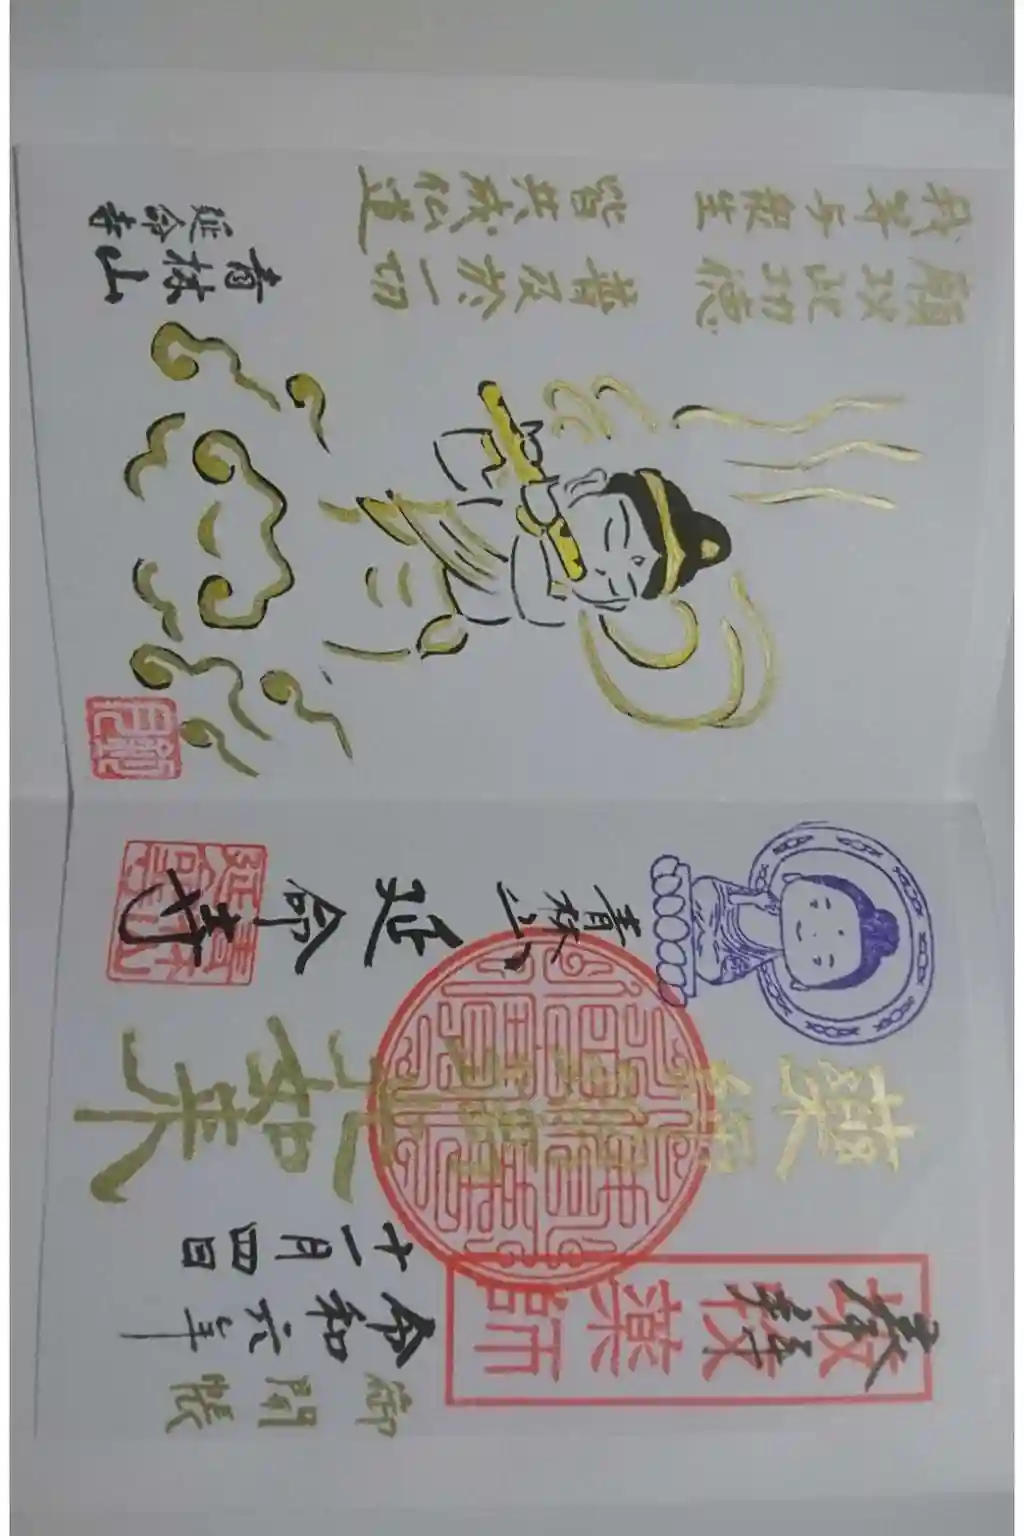 奉拝
御開帳
令和六年
十一月四日
薬師瑠璃光如来
青林山
延命寺
願以此功徳 普及於一切
我等与衆生 皆共成仏道
青林山
延命寺